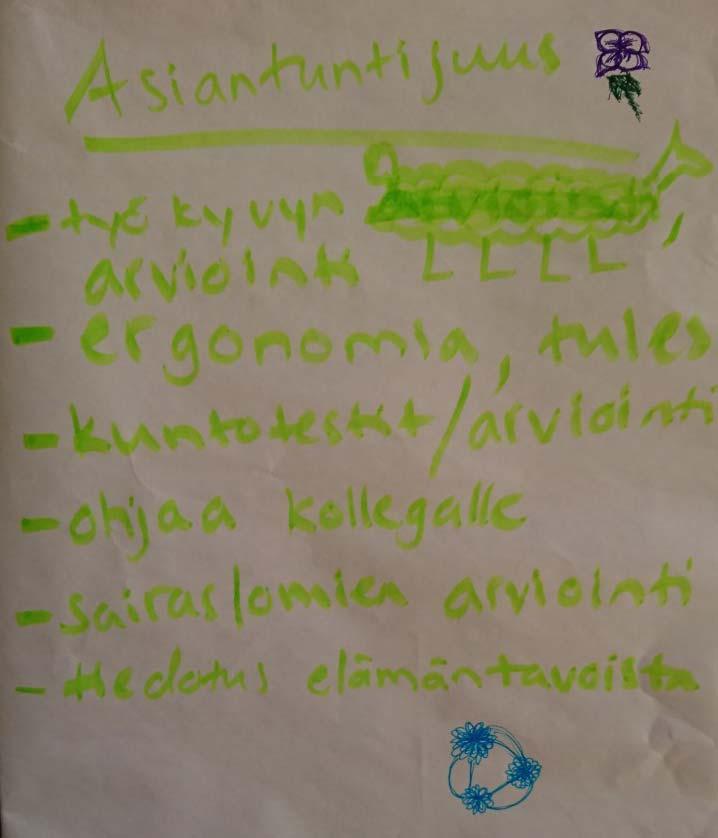 Asiantuntijuus
- työkyvyn
arviointi
- ergonomia, tules
- kuntotestit/arviointi
- ohjaa kollegalle
- sairaslomien arviointi
- tiedotus elämäntavoista